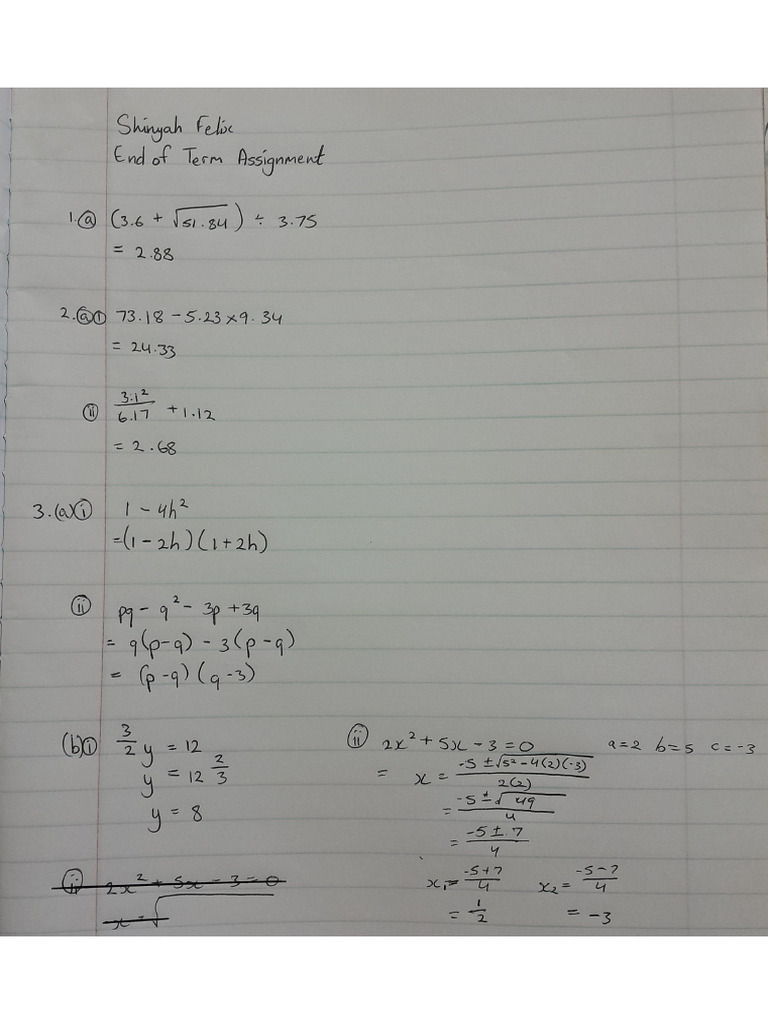 Shinyah Felix
End of Term Assignment
1. (a) (3.6 + √51.84) ÷ 3.75
= 2.88
2. (a) (i) 73.18 − 5.23 × 9.34
= 24.33
(ii) 3.1² / 6.17 + 1.12
= 2.68
3. (a) (i) 1 − 4h²
= (1 − 2h)(1 + 2h)
(ii) pq − q² − 3p + 3q
= q(p − q) − 3(p − q)
= (p − q)(q − 3)
(b) (i) 3/2 y = 12
y = 12 2/3
y = 8
(ii) 2x² + 5x − 3 = 0
x = √
(ii) 2x² + 5x − 3 = 0 a = 2 b = 5 c = −3
= x = (−5 ± √5² − 4(2)(−3)) / 2(2)
= (−5 ± √49) / 4
= (−5 ± 7) / 4
x₁ = (−5 + 7) / 4 x₂ = (−5 − 7) / 4
= 1/2 = −3